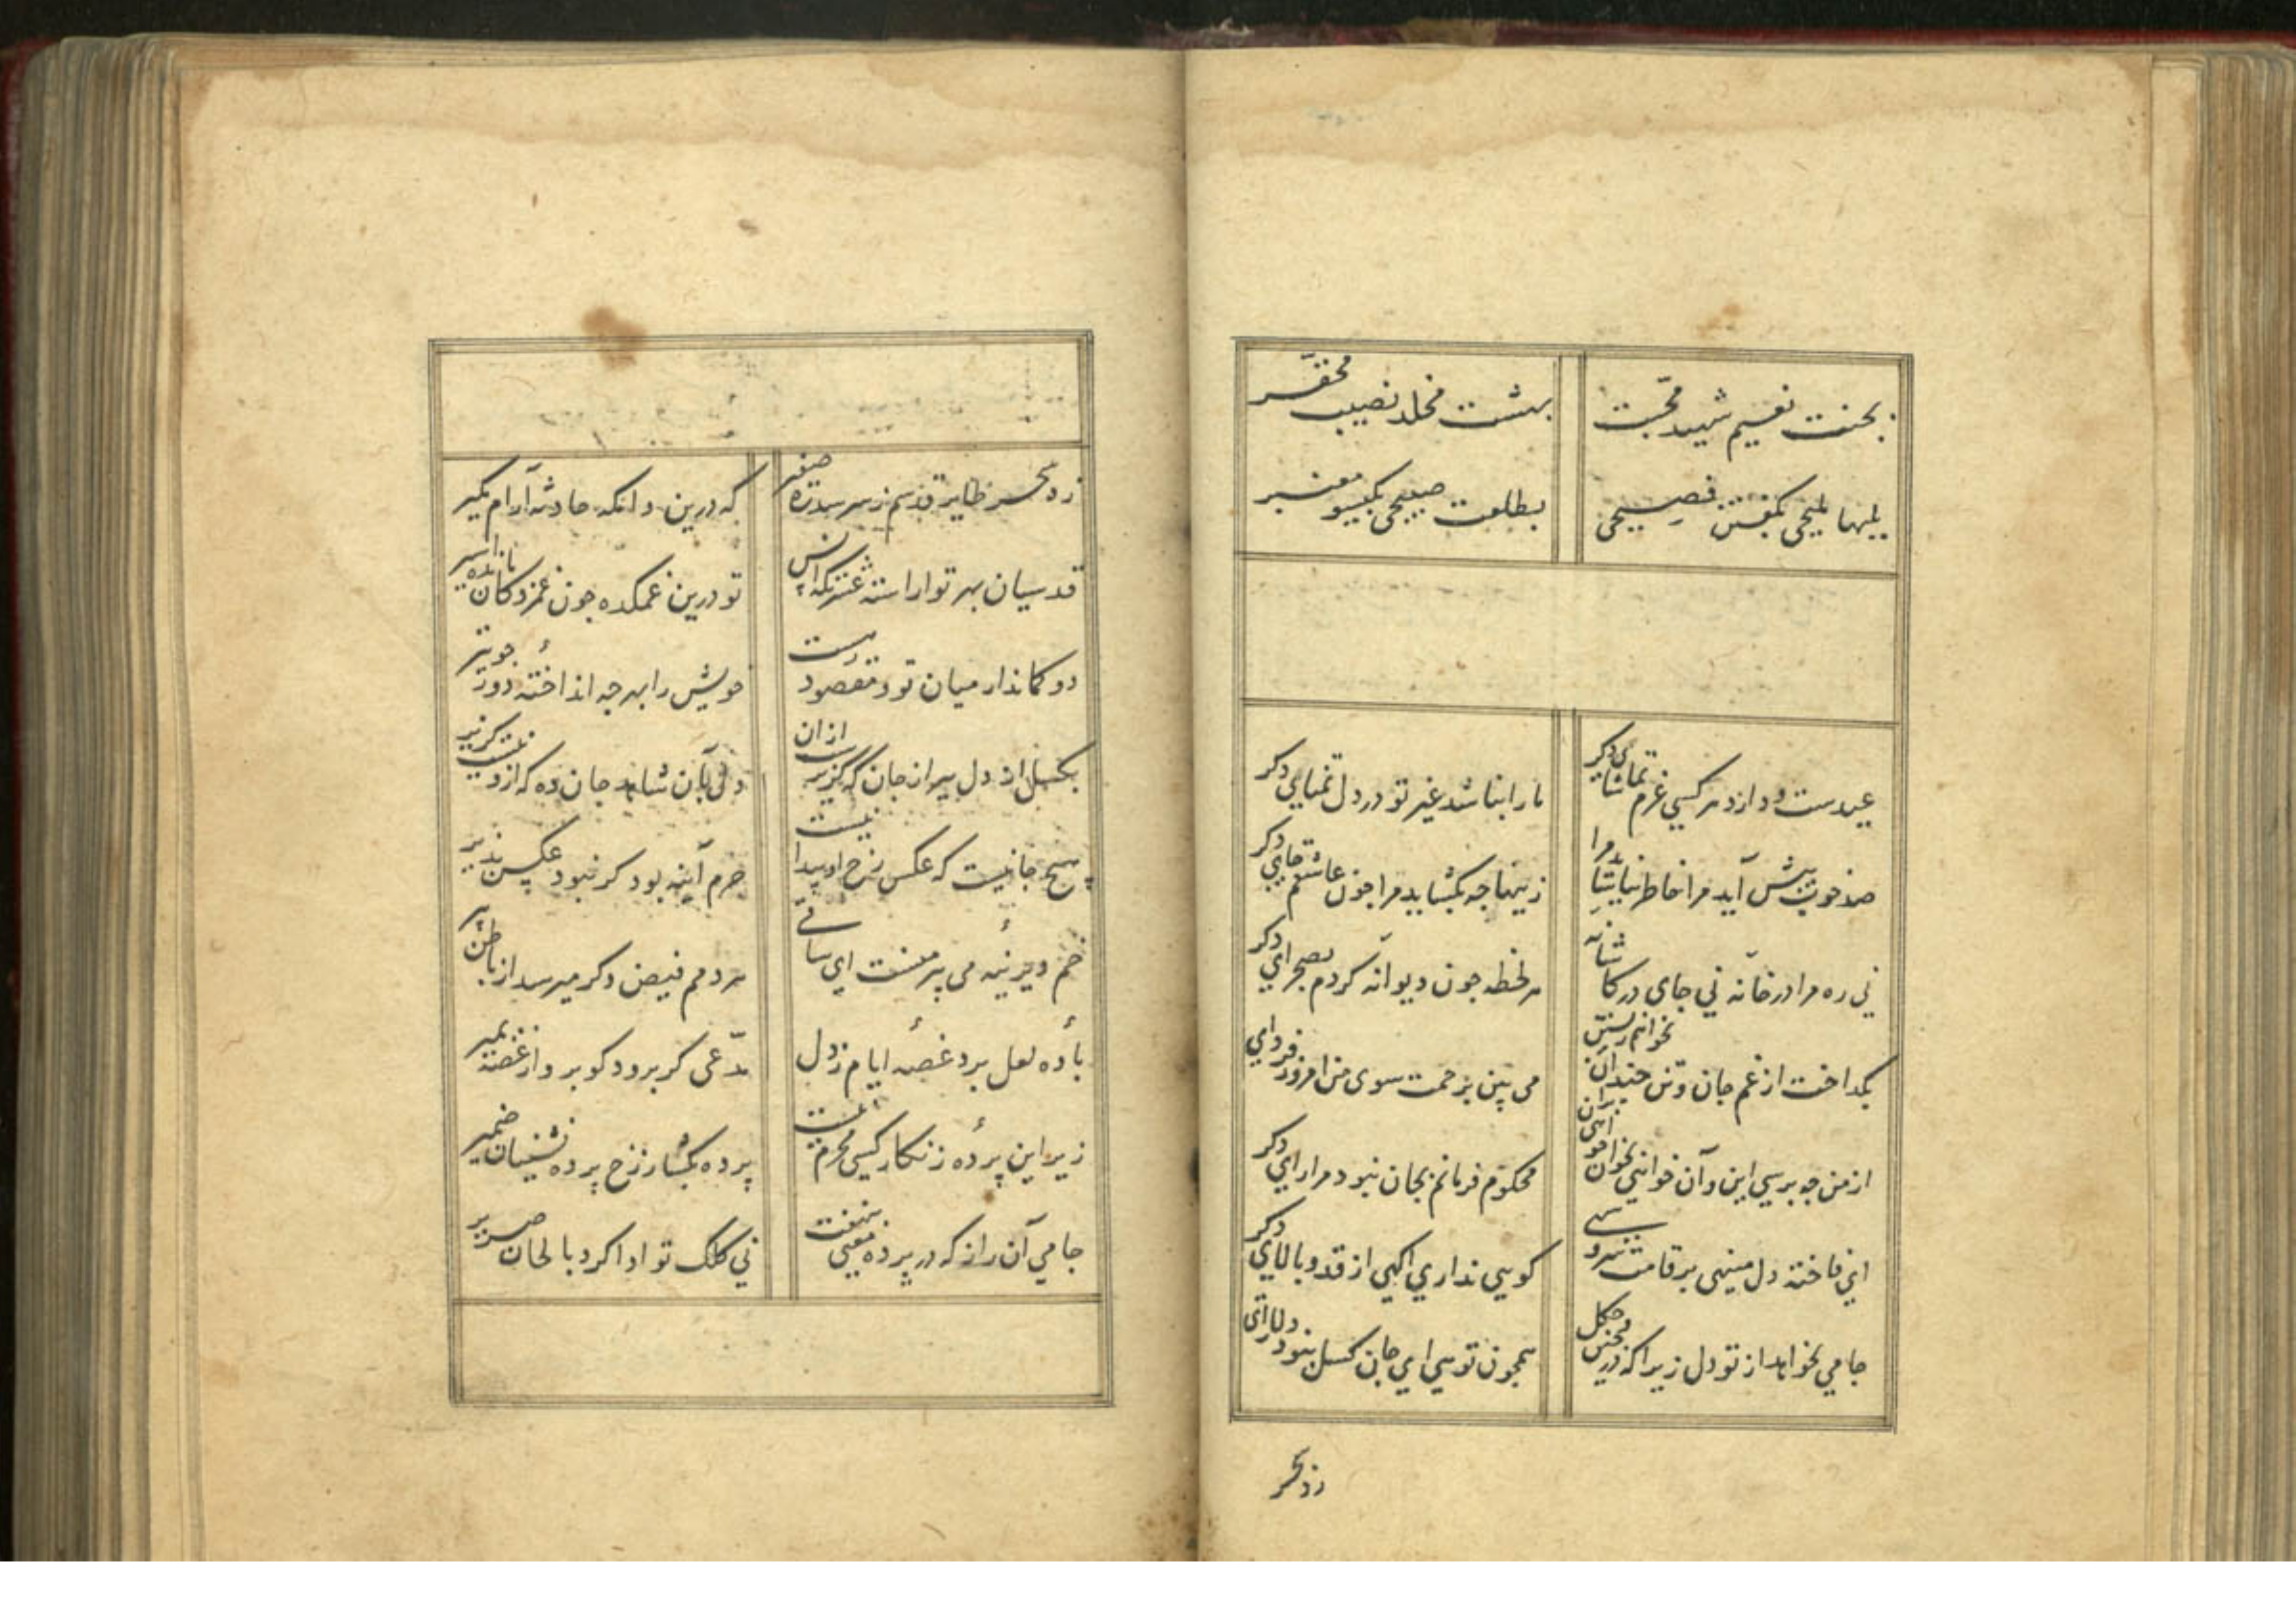 بجنت نعیم شهید محبت بهشت مخلد نصیب محقر
بلبها ملیحی بگفتن فصیحی بطلعت صبیحی بگیسو معنبر
عیدست و دارد هر کسی عزم تماشای دکر ما را نباشد غیر تو در دل تمنای دکر
صد خوب پیش آید مرا خاطر نیاساید مرا زینها چه بکشاید مرا چون عاشقم جایی دکر
نی ره مرا در خانه نی جای در کاشانه هر لحظه چون دیوانه کردم بصحرای دکر
بکداخت از غم جان و تن چندان نخواهم زیستن می بین برحمت سوی من امروز فردای
از من چه پرسی این و آن خواهی بخوان خواهی بران محکوم فرمانم بجان نبود مرا رای دکر
ای فاخته دل مینهی بر قامت سرو سهی کویی نداری اکهی از قد و بالای دکر
جامی نخواهد از تو دل زیرا که در چین و چکل همچون تویی ای جان کسل نبود دلارای
زد بحر
زد بسحر طایر قدسم ز سر سدره صفیر که درین دامکه حادثه آرام مکیر
قدسیان بهر تو آراسته عشرتکه انس تو درین غمکده چون غمزدکان مانده اسیر
دو کماندار میان تو و مقصود هست خویش را بهر چه انداخته دور چو تیر
بکسل از دل بیر از جان که کزیرست از آن دل بآن شاهد جان ده که ازو نیست کزیر
هیچ جا نیست که عکس رخ او پیدا نیست جرم آینه بود کر نبود عکس پذیر
خم دیرینه می پیر منست ای ساقی هر دمم فیض دکر میرسد از باطن پیر
باده لعل برد غصه ایام ز دل مدعی کر برود کو برو از غصه بمیر
زیر این پرده زنکار کسی محرم نیست پرده بکشا ز رخ پرده نشینان ضمیر
جامی آن راز که در پرده معنی بنهفت نی کلک تو ادا کرد بالحان صریر